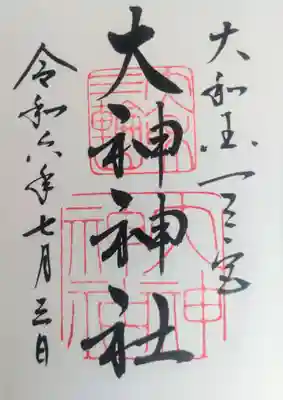 大和国一之宮
大神神社
令和六年七月三日
大神
神社